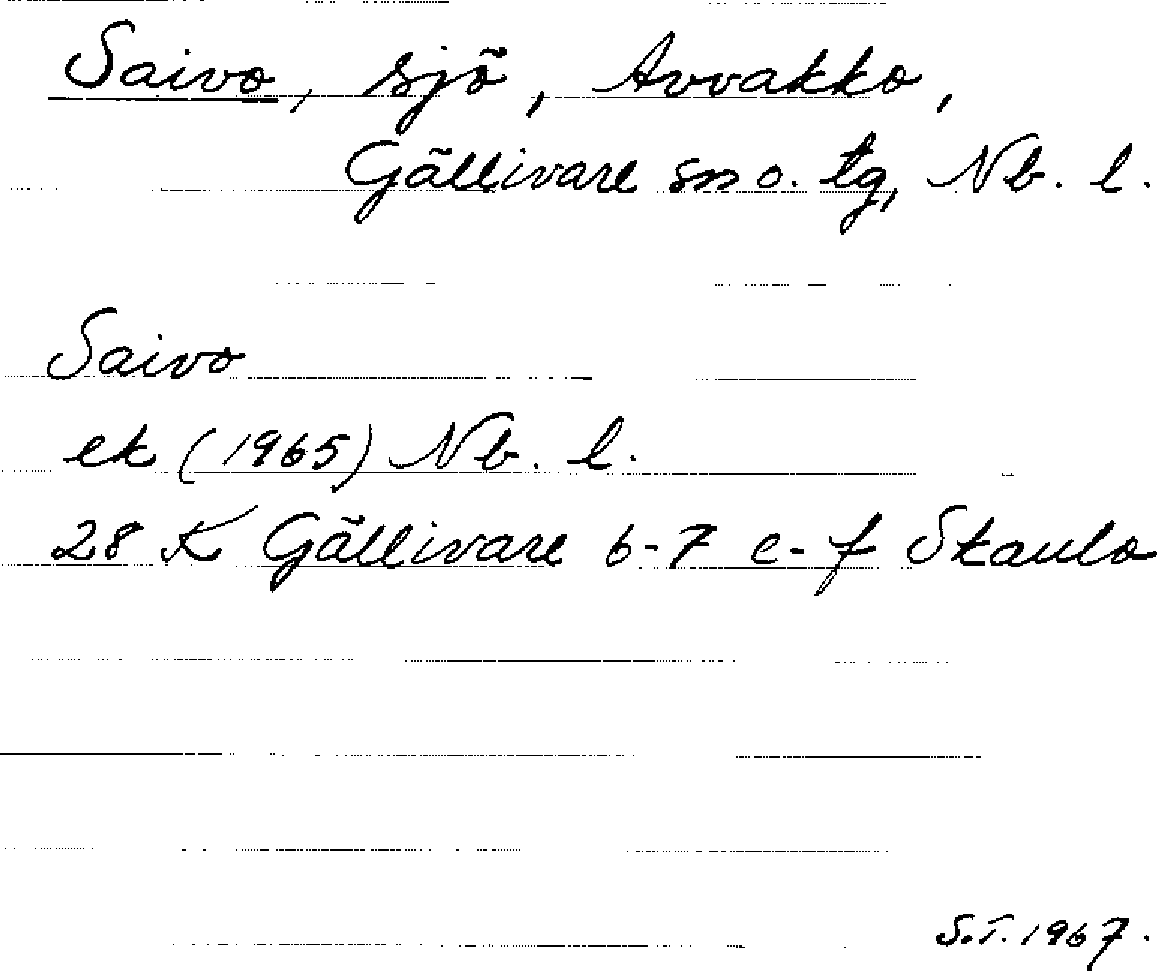 Saivo, sjö, Avvakko,
Gällivare sn o. tg, Nb. l.
Saivo
ek (1965) Nb. l.
28 K Gällivare 6-7 e-f Skaulo
S.T. 1967.